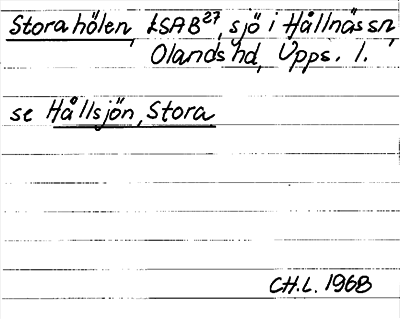 Stora hölen, ɫSAB27, sjö i Hållnäs sn,
Olands hd, Upps. l.
se Hållsjön, Stora
CH.L. 1968